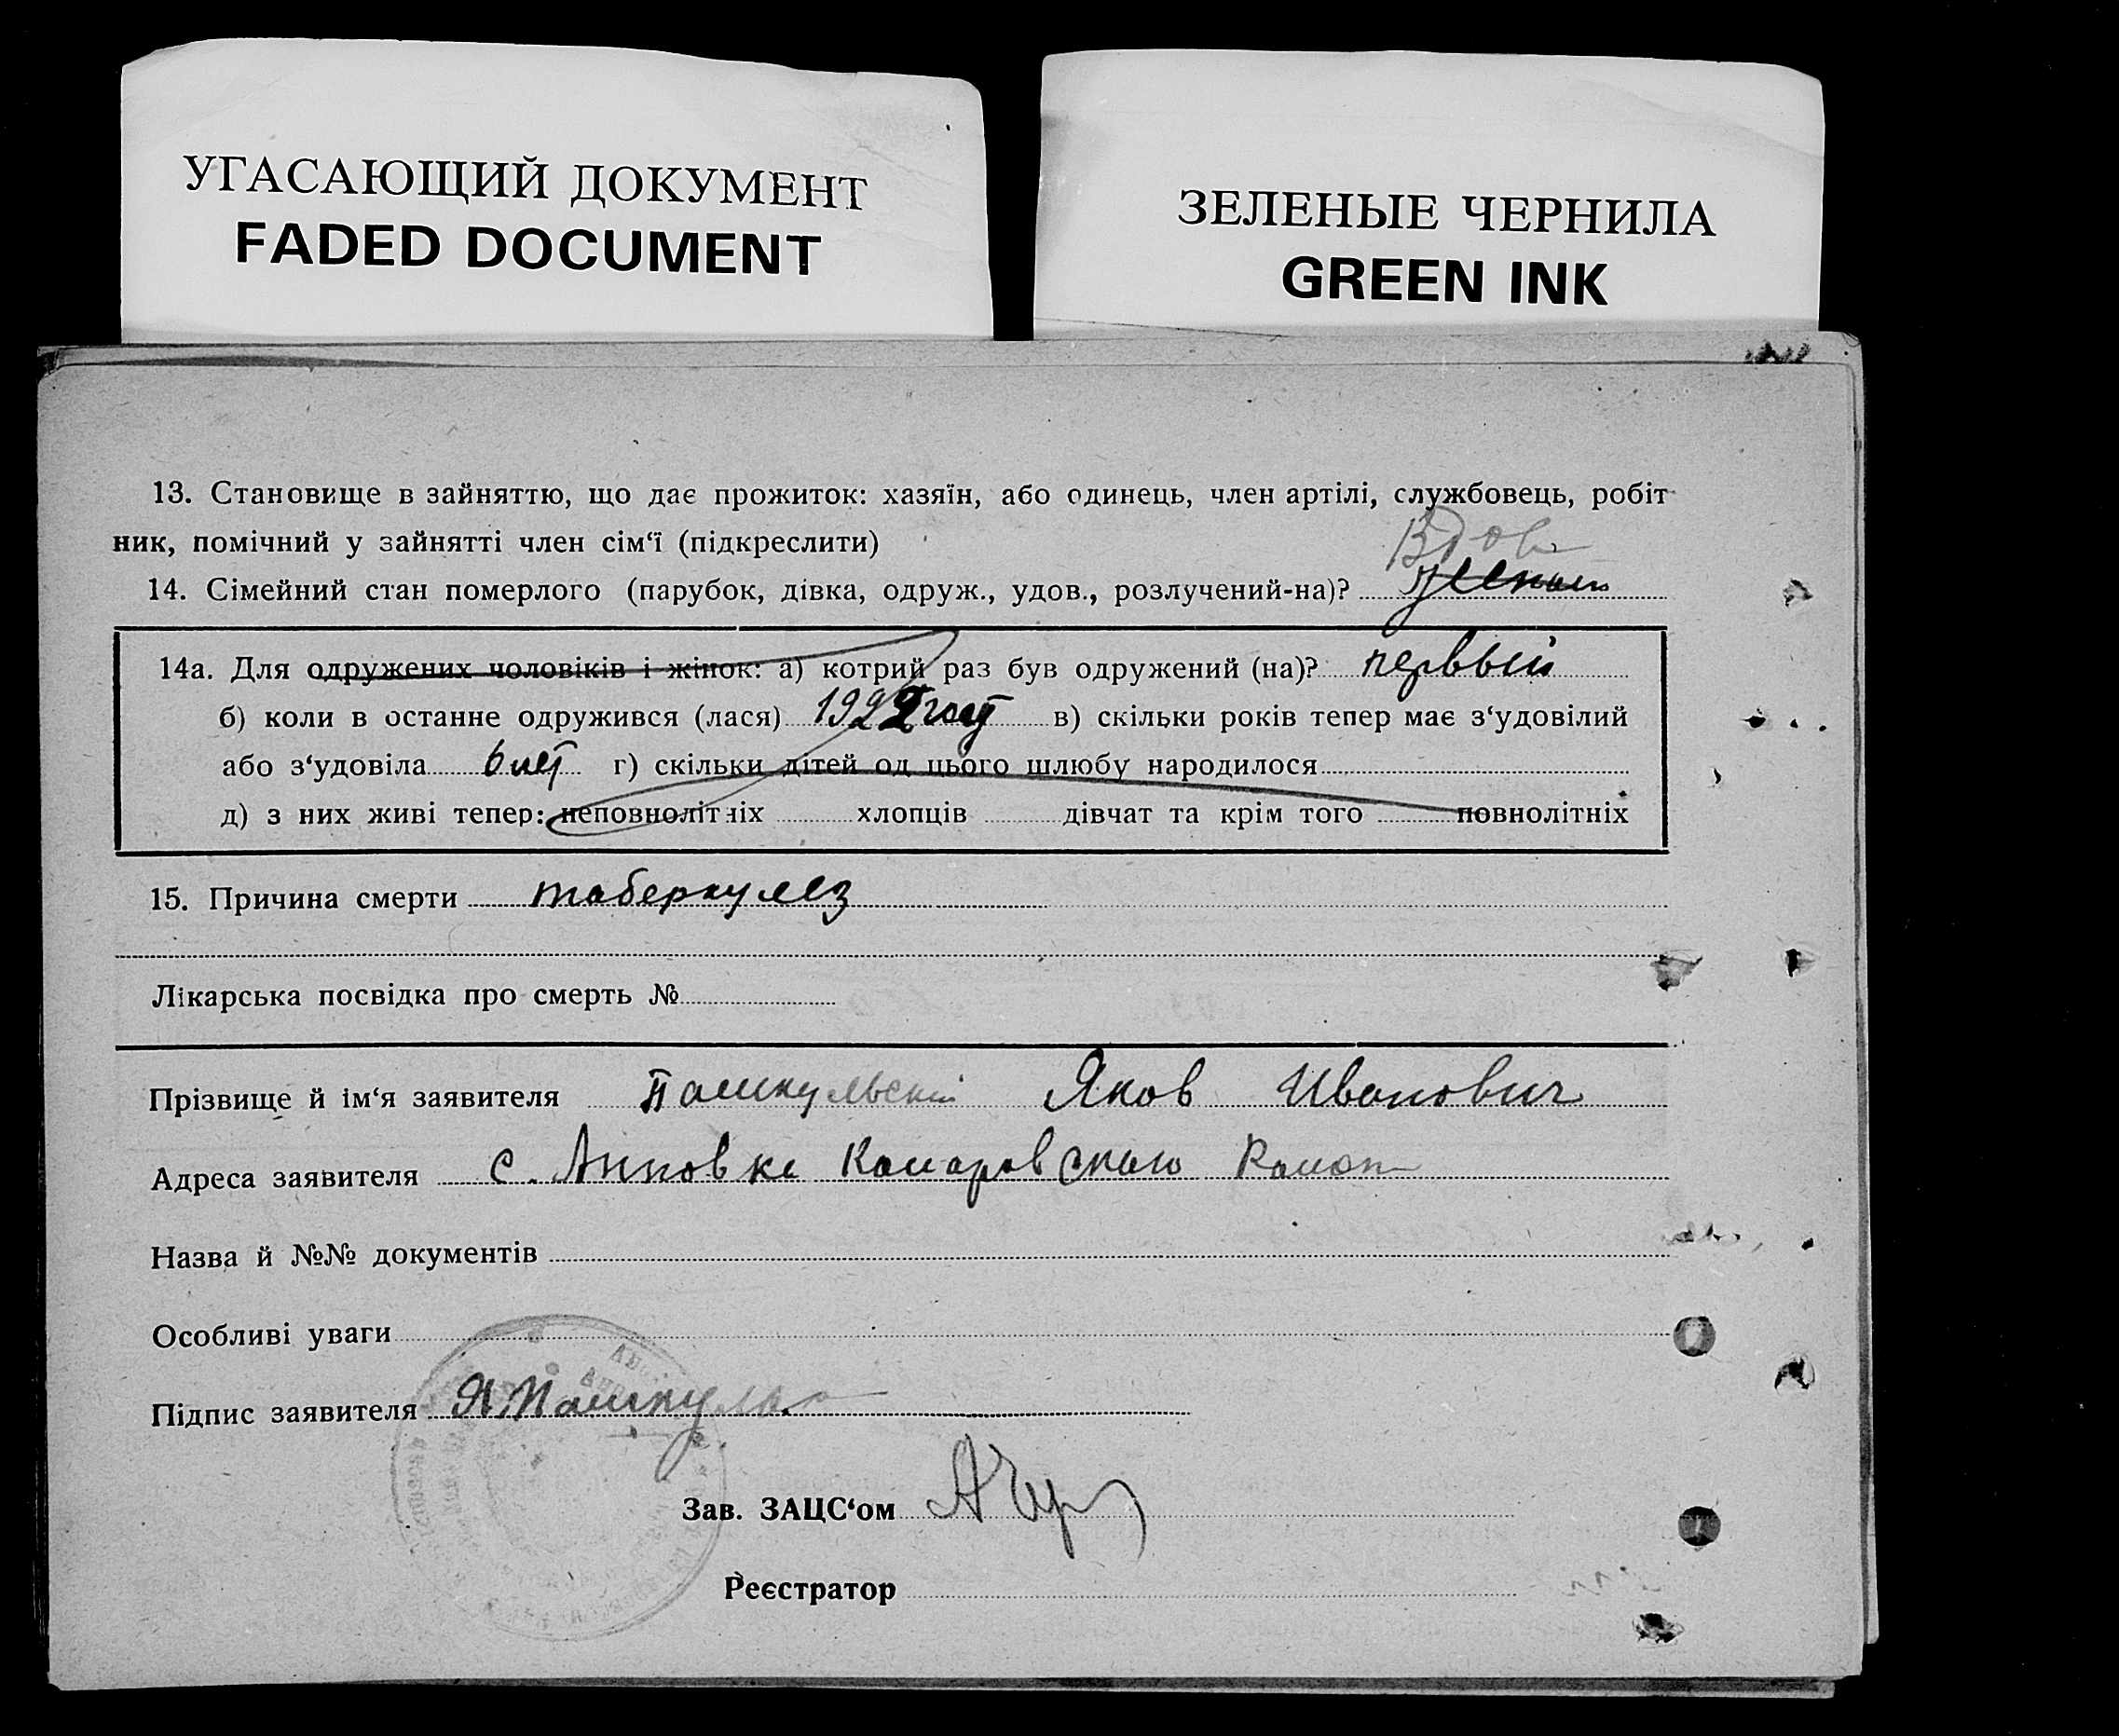 УГАСАЮЩИЙ ДОКУМЕНТ
FADED DOCUMENT
ЗЕЛЕНЫЕ ЧЕРНИЛА
GREEN INK
13. Становище в зайняттю, що дає прожиток: хазяїн, або одинець, член артілі, службовець, робіт-
ник, помічний у зайнятті член сім‘ї (підкреслити)
Вдов
14. Сімейний стан померлого (парубок, дівка, одруж., удов., розлучений-на)?
14а. Для одружених чоловіків і жінок: а) котрий раз був одружений (на)? первый
б) коли в останнє одружився (лася) 1922 году в) скільки років тепер має з‘удовілий
або з‘удовіла 6 лет г) скільки дітей од цього шлюбу народилося
д) з них живі тепер: неповнолітніх хлопців дівчат та крім того повнолітніх
15. Причина смерти таберкулез
Лікарська посвідка про смерть №
Прізвище й ім‘я заявителя Пашкульский Яков Иванович
Адреса заявителя с. Анновка Комаровского Район
Назва й №№ документів
Особливі уваги
Підпис заявителя Я Пашкуль
Зав. ЗАЦС‘ом
Реєстратор